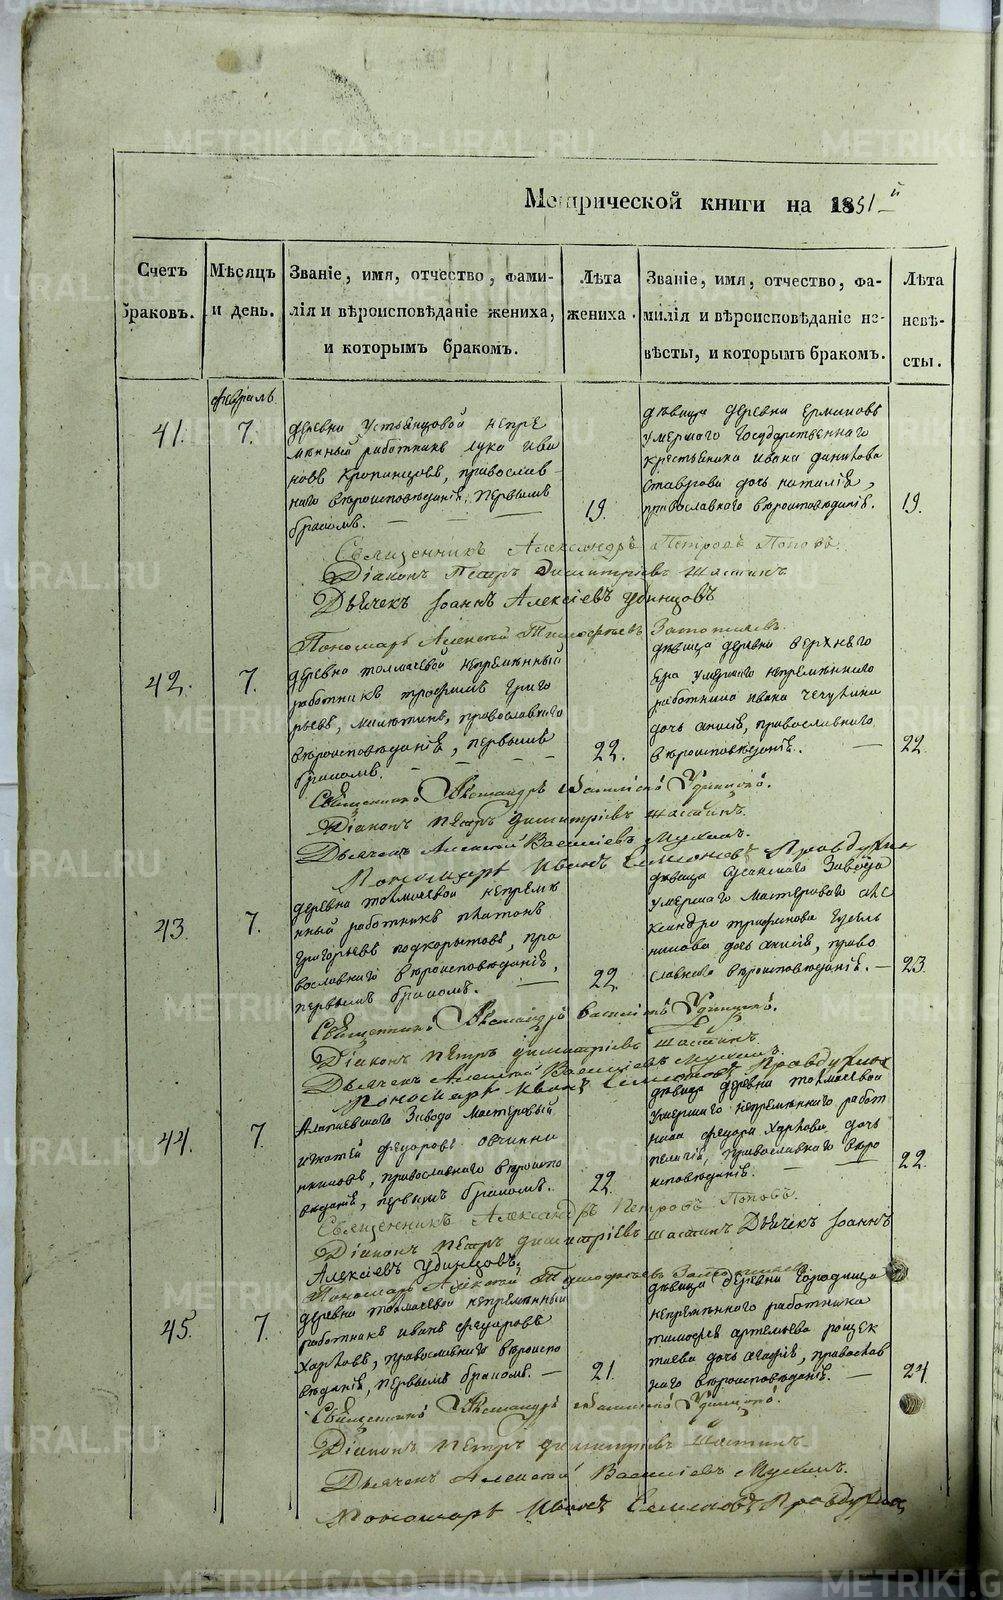 Метрической книги на 1851-й
Счетъ браковъ.
Мѣсяцъ и день.
Званіе, имя, отчество, фами-
лія и вѣроисповѣданіе жениха,
и которымъ бракомъ.
Лѣта жениха.
Званіе, имя, отчество, фа-
милія и вѣроисповѣданіе не-
вѣсты, и которымъ бракомъ.
Лѣта невѣ-
сты.
февраль
41.
7.
деревни Устьянцовой непре
мѣнный работникъ Лука Ива
новъ Кропанцовъ, православ-
наго вѣроисповѣданія, первымъ
бракомъ.
19.
дѣвица деревни Ермаковъ
умершаго Государственнаго
крестьянина Ивана Данилова
Ставрова дочь Наталія,
православнаго вѣроисповѣданія.
19.
Священникъ Александръ Петровъ Поповъ
Діаконъ Петръ Димитріевъ Шастинъ
Дьячекъ Іоаннъ Алексіевъ Удинцовъ
Пономарь Алексей Тимофеевъ
42.
7.
деревни Толмачевой непремѣнный
работникъ Трофимъ Григо
рьевъ, Милютинъ, православнаго
вѣроисповѣданія, первымъ
бракомъ.
22.
дѣвица деревни Верхняго
Яра умершаго непремѣннаго
работника Ивана Чечулина
дочь Анисія, православнаго
вѣроисповѣданія.
22.
Священникъ Александръ Василіевъ Удинцовъ.
Діаконъ Петръ Димитріевъ Шастинъ.
Дьячекъ Алексей Василіевъ Мухинъ.
Пономарь Иванъ Симеоновъ Правдухин
43.
7.
деревни Толмачевой непремѣ
нный работникъ Платонъ
Григорьевъ Подкорытовъ, пра
вославнаго вѣроисповѣданія,
первымъ бракомъ.
22.
дѣвица Сусанскаго Завода
умершаго Мастероваго Але
ксандра Трифонова Гусель
никова дочь Анисія, право
славнаго вѣроисповѣданія.
23.
Священникъ Александръ Василіевъ Удинцовъ.
Діаконъ Петръ Димитріевъ Шастинъ.
Дьячекъ Алексей Василіевъ Мухинъ.
Пономарь Иванъ Симеоновъ Правдухин
44.
7.
Алапаевскаго Завода Мастеровый
Игнатей Федоровъ Овчинни
никовъ, православнаго вѣроиспо
вѣданія, первымъ бракомъ.
22.
дѣвица деревни Толмачевой
умершаго непремѣннаго работ
ника Федора Харлова дочь
Пелагія, православнаго вѣро
исповѣданія.
22.
Священникъ Александръ Петровъ Поповъ.
Діаконъ Петръ Димитріевъ Шастинъ Дьячекъ Іоаннъ
Алексіевъ Удинцовъ.
Пономарь Алексей Тимофеевъ
45.
7.
деревни Толмачевой непремѣнный
работникъ Иванъ Федоровъ
Харловъ, православнаго вѣроиспо
вѣданія, первымъ бракомъ.
21.
дѣвица деревни Городища
непремѣннаго работника
Тимофея Артемьева Рощек
таева дочь Агафія, православ
наго вѣроисповѣданія.
24.
Священникъ Александръ Василіевъ Удинцовъ.
Діаконъ Петръ Димитріевъ Шастинъ.
Дьячекъ Алексей Василіевъ Мухинъ.
Пономарь Иванъ Симеоновъ Правдухин
METRIKI.GASO-URAL.RU